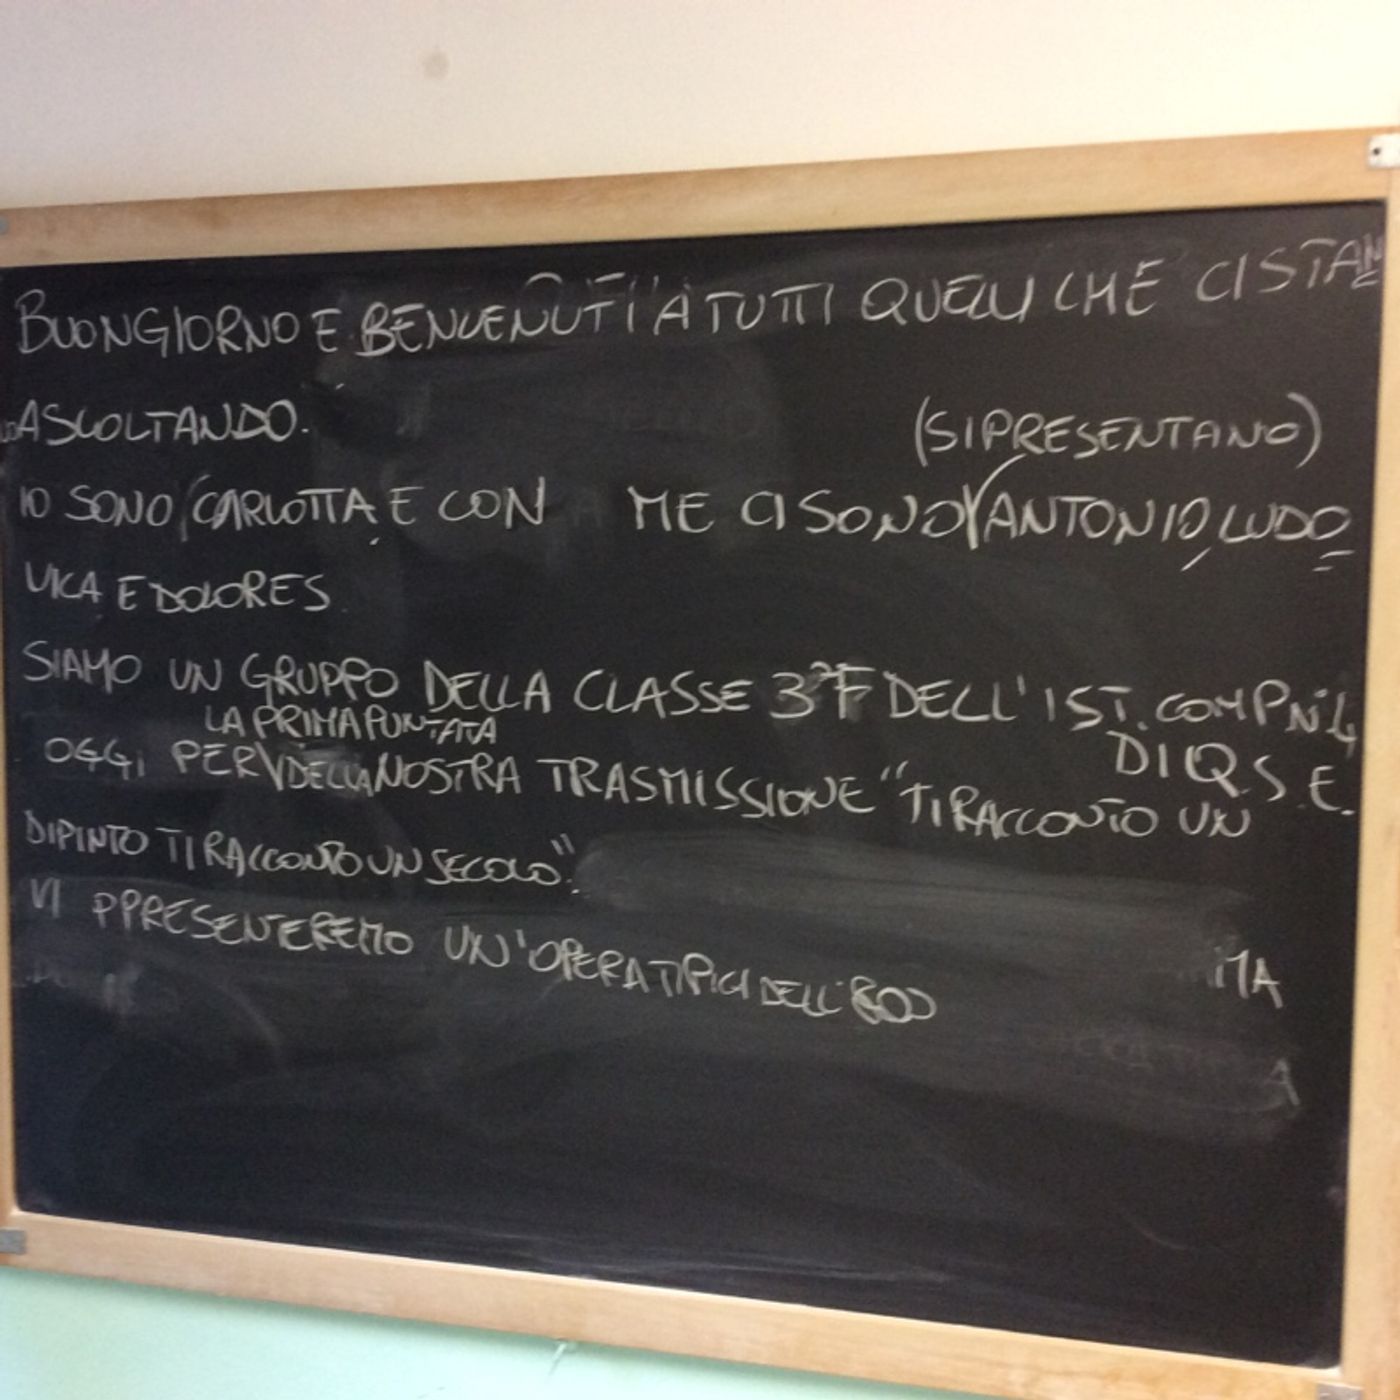 BUONGIORNO E BENVENUTI A TUTTI QUELLI CHE CI STAN
NO ASCOLTANDO.
(SI PRESENTANO)
IO SONO CARLOTTA, E CON ME CI SONO ANTONIO, LUDO
VICA E DOLORES
SIAMO UN GRUPPO DELLA CLASSE 3ªF DELL'IST. COMP N°4
DI Q.S.E.
LA PRIMA PUNTATA
OGGI PER DELLA NOSTRA TRASMISSIONE "TI RACCONTO UN
DIPINTO TI RACCONTO UN SECOLO".
VI PPRESENTEREMO UN'OPERA TIPICI DELL'800
MA
A